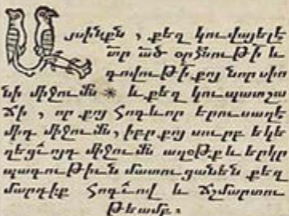 Այսինքն , քեզ կու վայելէ
տր ած օրհնու թի և
գովու թի, քոյ նոր սիո
նի միջումն ✳ և քեզ կու պատշա
ճի , որ քոյ հոգևոր երուսաղէ
միդ միջումն , իբր քոյ սուրբ եկե
ղեցւոյդ միջումն աղօթք և երկր
պագու թիւն մատուցանեն քեզ
մարդիք հոգւով և ճշմարտու
թեամբ :